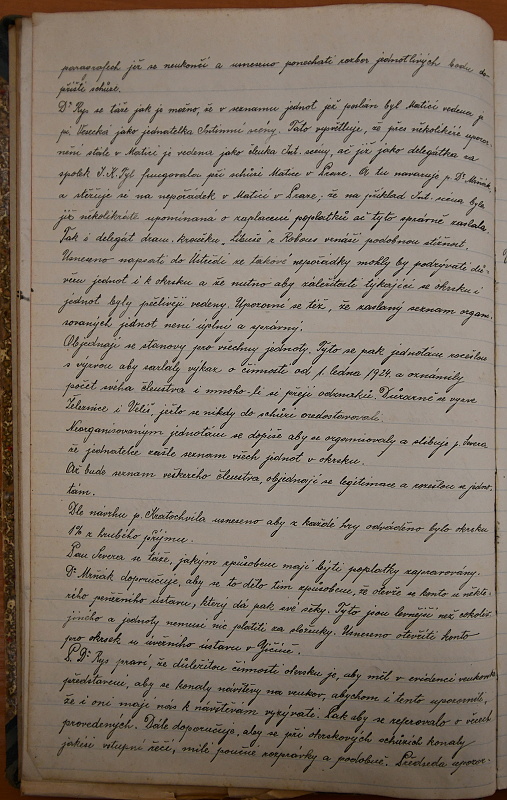 paragrafech již se neukončí a usneseno ponechati rozbor jednotlivých bodů do
příští schůze.
Dr Rys se táže jak je možno, že v seznamu jednot jež poslán byl Maticí vedena je
pí. Vesecká jako jednatelka Intimní scény. Táto vysvětluje, že přes několikeré upozor-
nění stále v Matici je vedena jako členka Int. sceny, ač již jako delegátka za
spolek J. K. Tyl fungovala při schůzi Matice v Praze. Na tu navazuje p. Dr Mrňák
a stěžuje si na nepořádek v Matici v Praze, že na příklad Int. scena byla
již několikráte upomínána o zaplacení poplatků ač tyto správně zaslala.
Tak i delegát dram. kroužku „Libuše" z Robous vznáší podobnou stížnost.
Usneseno napsati do Ústředí že takové nepořádky mohly by podrývati dů-
věru jednot i k okrsku a že nutno aby záležitosti týkající se okrsku i
jednot byly pečlivěji vedeny. Upozorní se též, že zaslaný seznam organi-
sovaných jednot není úplný a správný.
Objednají se stanovy pro všechny jednoty. Tyto se pak jednotám rozešlou
s výzvou aby zaslaly výkaz o činnosti od 1. ledna 1924. a oznámily
počet svého členstva i mnoho-li si přejí odznaků. Důrazně se vyzve
Železnice i Veliš, ježto se nikdy do schůzí nedostavovali.
Neorganisovaným jednotám se dopíše aby se organisovaly a slibuje p. Severa
že jednatelce zašle seznam všech jednot v okrsku.
Až bude seznam veškerého členstva, objednají se legitimace a rozešlou se jedno-
tám.
Dle návrhu p. Kratochvíla usneseno aby z každé hry odváděno bylo okrsku
1% z hrubého příjmu.
Pan Severa se táže, jakým způsobem mají býti poplatky zapravovány.
Dr Mrňák doporučuje, aby se to dělo tím způsobem, že otevře se konto u někte-
rého peněžního ústavu, který dá pak své šeky. Tyto jsou levnější než cokoliv
jiného a jednoty nemusí nic platiti za složenky. Usneseno otevříti konto
pro okrsek u úvěrního ústavu v Jičíně.
P. Dr Rys praví, že důležitou činností okrsku je, aby měl v evidenci venkovská
představení, aby se konaly návštěvy na venkov, abychom i tento upozornili,
že i oni mají nás k návštěvám vyzývati. Pak aby se referovalo o věcech
provedených. Dále doporučuje, aby se při okrskových schůzích konaly
jakési vstupní řeči, milé poučné rozprávky a podobně. Předseda upozor-